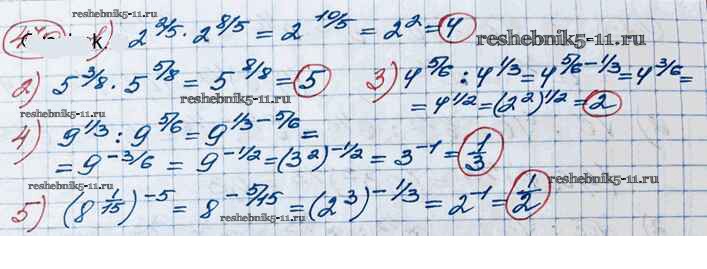 reshebnik5-11.ru
1) 2^{2/5} · 2^{8/5} = 2^{10/5} = 2^2 = 4
reshebnik5-11.ru
2) 5^{3/8} · 5^{5/8} = 5^{8/8} = 5
3) 4^{5/6} : 4^{1/3} = 4^{5/6-1/3} = 4^{3/6} =
reshebnik5-11.ru
= 4^{1/2} = (2^2)^{1/2} = 2
4) 9^{1/3} : 9^{5/6} = 9^{1/3-5/6} =
reshebnik5-11.ru
= 9^{-3/6} = 9^{-1/2} = (3^2)^{-1/2} = 3^{-1} = 1/3
reshebnik5-11.ru
5) (8^{1/15})^{-5} = 8^{-5/15} = (2^3)^{-1/3} = 2^{-1} = 1/2
reshebnik5-11.ru